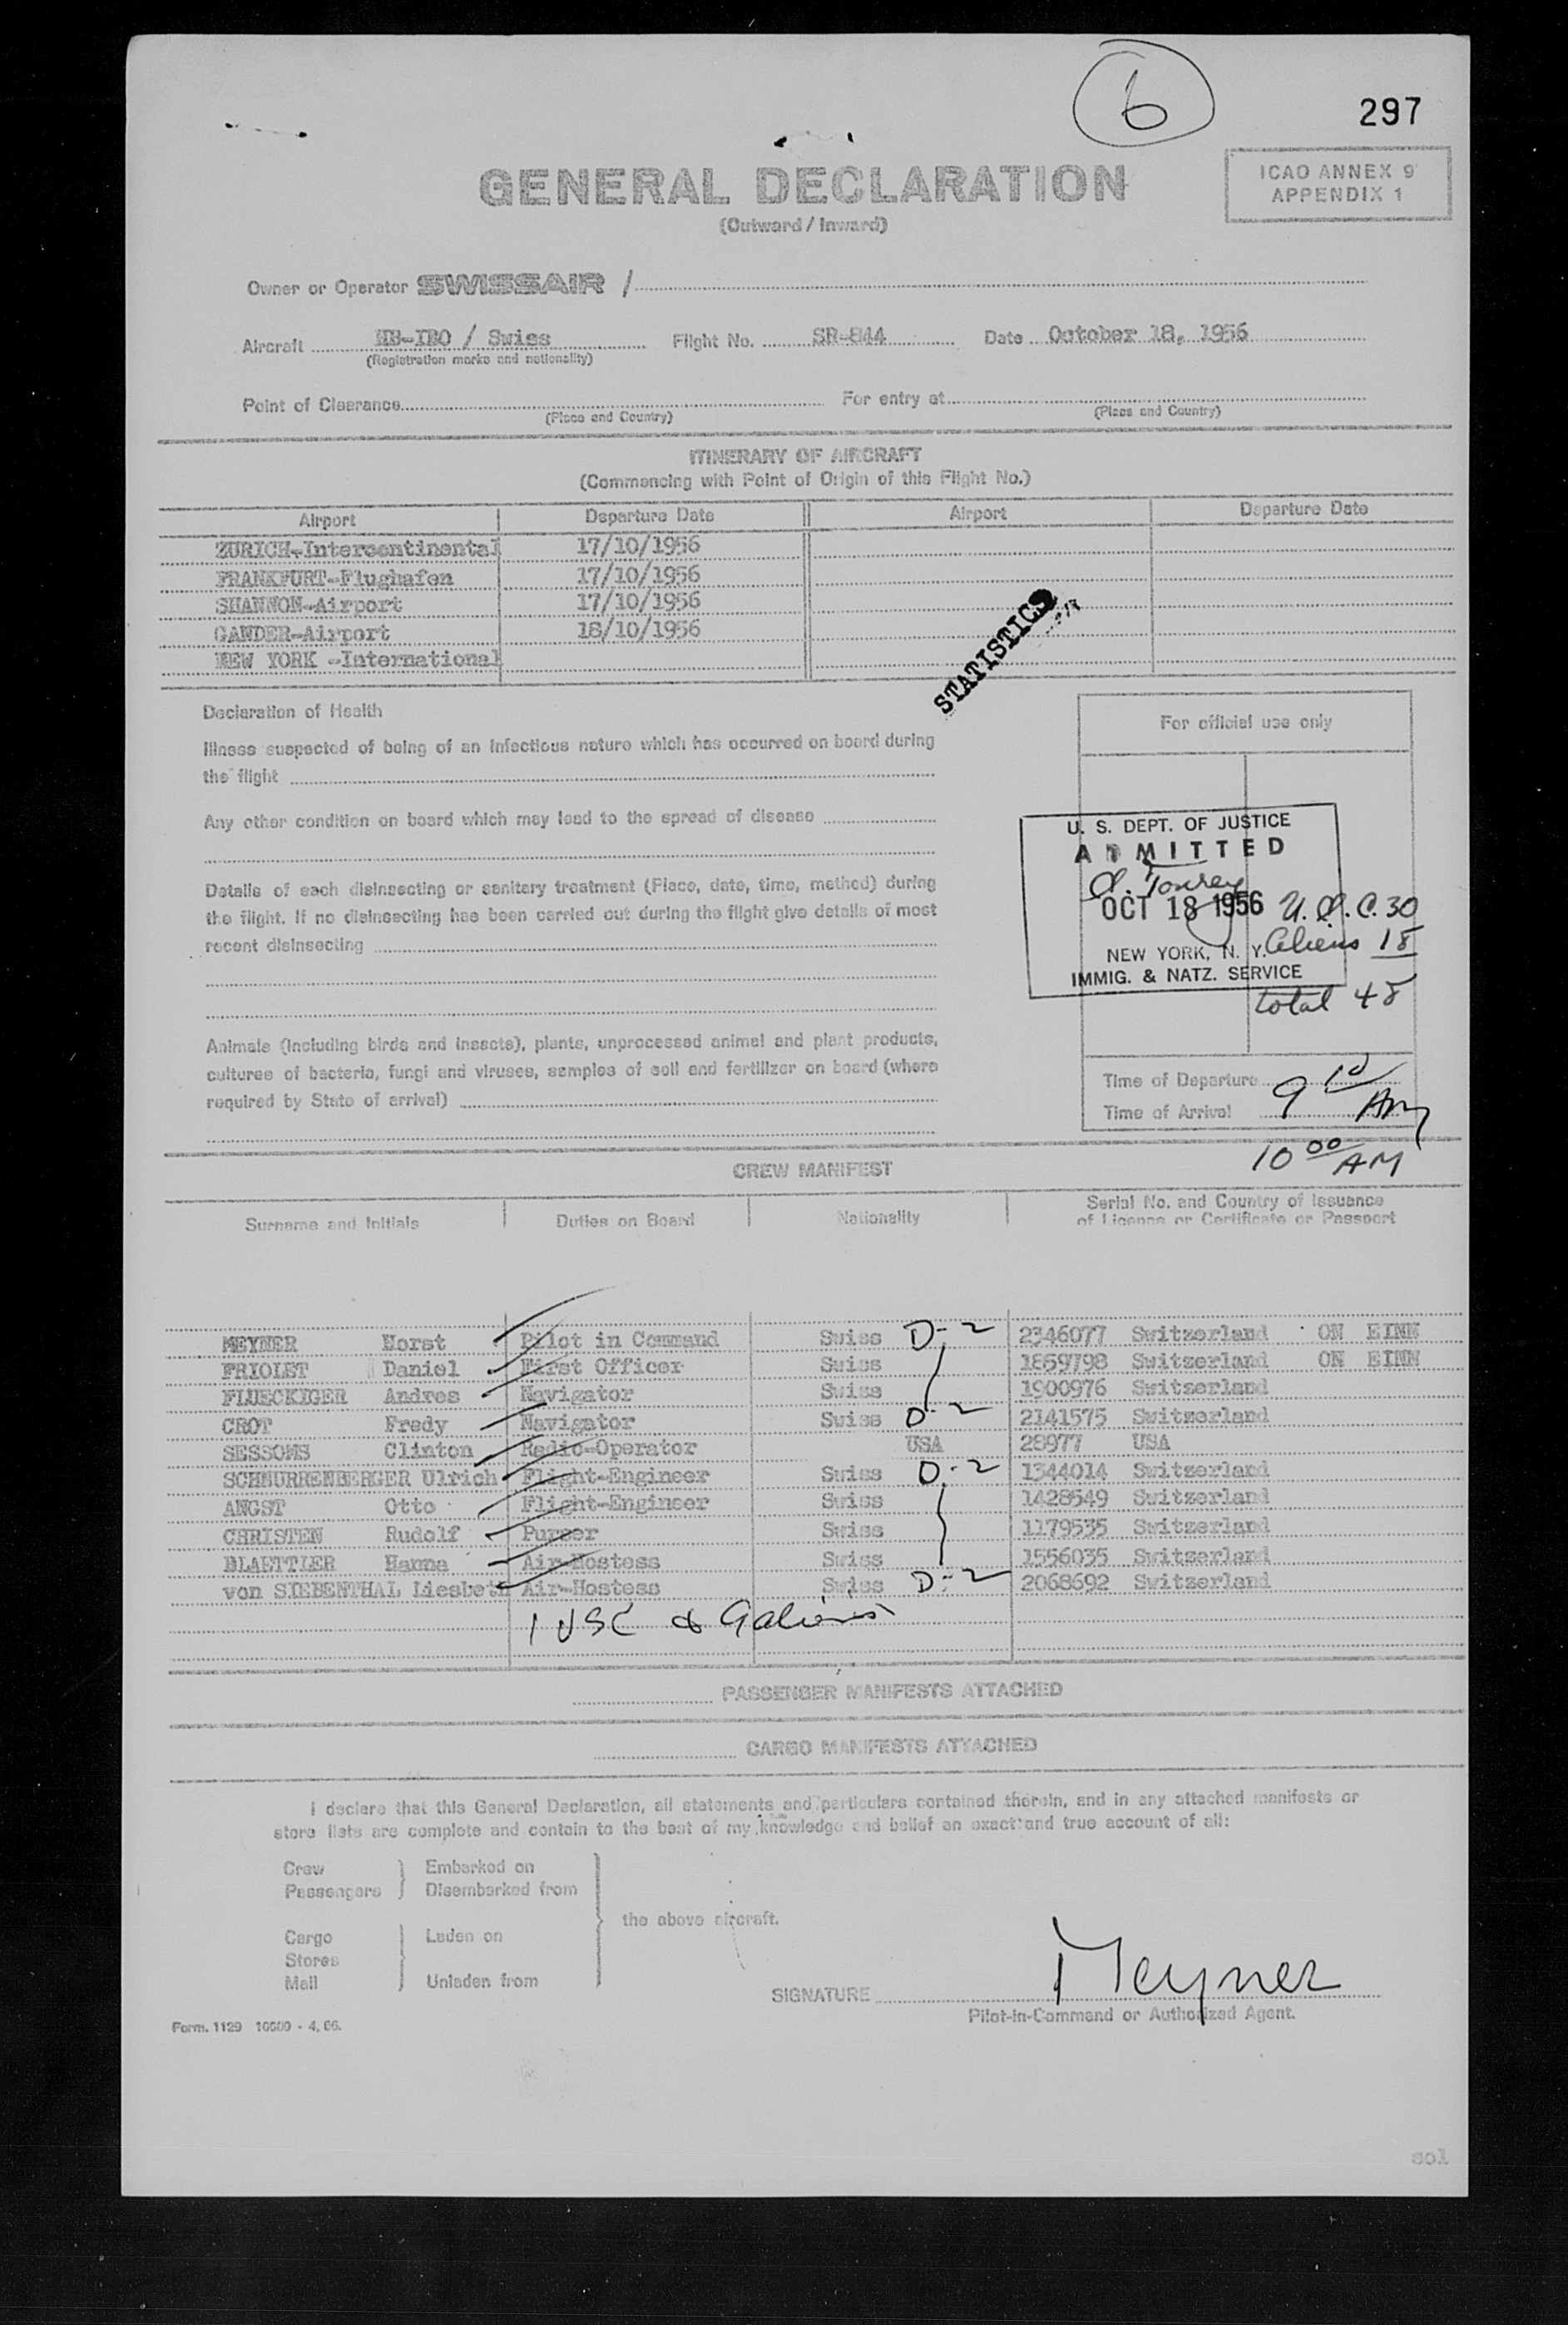 6
297
GENERAL DECLARATION
(Outward / Inward)
ICAO ANNEX 9
APPENDIX 1
Owner or Operator SWISSAIR /
Aircraft HB-IBO / Swiss Flight No. SR-844 Date October 18, 1956
(Registration marks and nationality)
Point of Clearance For entry at
(Place and Country) (Place and Country)
ITINERARY OF AIRCRAFT
(Commencing with Point of Origin of this Flight No.)
Airport Departure Date Airport Departure Date
ZURICH-Intercontinental 17/10/1956
FRANKFURT-Flughafen 17/10/1956
SHANNON-Airport 17/10/1956
GANDER-Airport 18/10/1956
NEW YORK -International
STATISTICS
Declaration of Health
Illness suspected of being of an infectious nature which has occurred on board during
the flight
Any other condition on board which may lead to the spread of disease
Details of each disinsecting or sanitary treatment (Place, date, time, method) during
the flight. If no disinsecting has been carried out during the flight give details of most
recent disinsecting
Animals (including birds and insects), plants, unprocessed animal and plant products,
cultures of bacteria, fungi and viruses, samples of soil and fertilizer on board (where
required by State of arrival)
For official use only
U. S. DEPT. OF JUSTICE
ADMITTED
OCT 18 1956
NEW YORK, N. Y.
IMMIG. & NATZ. SERVICE
U.S.C. 30
Aliens 18
total 48
Time of Departure 9 10 AM
Time of Arrival
10 00 AM
CREW MANIFEST
Surname and Initials Duties on Board Nationality Serial No. and Country of Issuance
of Licence or Certificate or Passport
MEYNER Horst Pilot in Command Swiss D-2 2346077 Switzerland ON EINN
FRIOLET Daniel First Officer Swiss 1859798 Switzerland ON EINN
FLUECKIGER Andres Navigator Swiss 1900976 Switzerland
CROT Fredy Navigator Swiss D-2 2141575 Switzerland
SESSOMS Clinton Radio-Operator USA 28977 USA
SCHNURRENBERGER Ulrich Flight-Engineer Swiss D-2 1344014 Switzerland
ANGST Otto Flight-Engineer Swiss 1428549 Switzerland
CHRISTEN Rudolf Purser Swiss 1179535 Switzerland
BLAETTLER Hanna Air-Hostess Swiss 1556035 Switzerland
von SIEBENTHAL Liesbeth Air-Hostess Swiss D-2 2068692 Switzerland
1 USC & 9 aliens
PASSENGER MANIFESTS ATTACHED
CARGO MANIFESTS ATTACHED
I declare that this General Declaration, all statements and particulars contained therein, and in any attached manifests or
store lists are complete and contain to the best of my knowledge and belief an exact and true account of all:
Crew Embarked on
Passengers Disembarked from
the above aircraft.
Cargo Laden on
Stores
Mail Unladen from
SIGNATURE Meyner
Pilot-in-Command or Authorized Agent.
Form. 1129